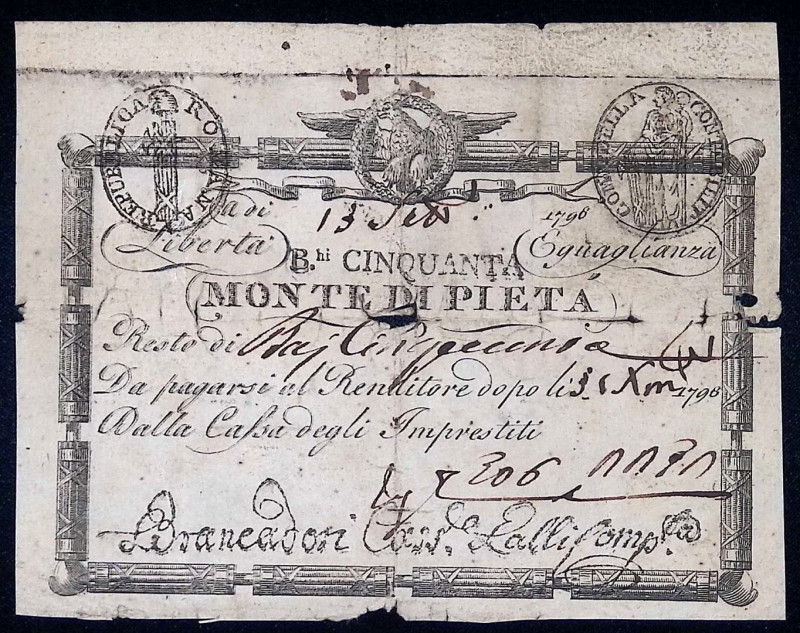 REPUBLICA ROMANA
COM DELLA CONT
a di 13 1798
Liberta Eguaglianza
B.hi CINQUANTA
MONTE DI PIETÁ
Resto di Baj Cinquanta
Da pagarsi al Renditore dopo li 1798
Dalla Cassa degli Imprestiti
Brancadori Cass.e Lalli Comp.ta